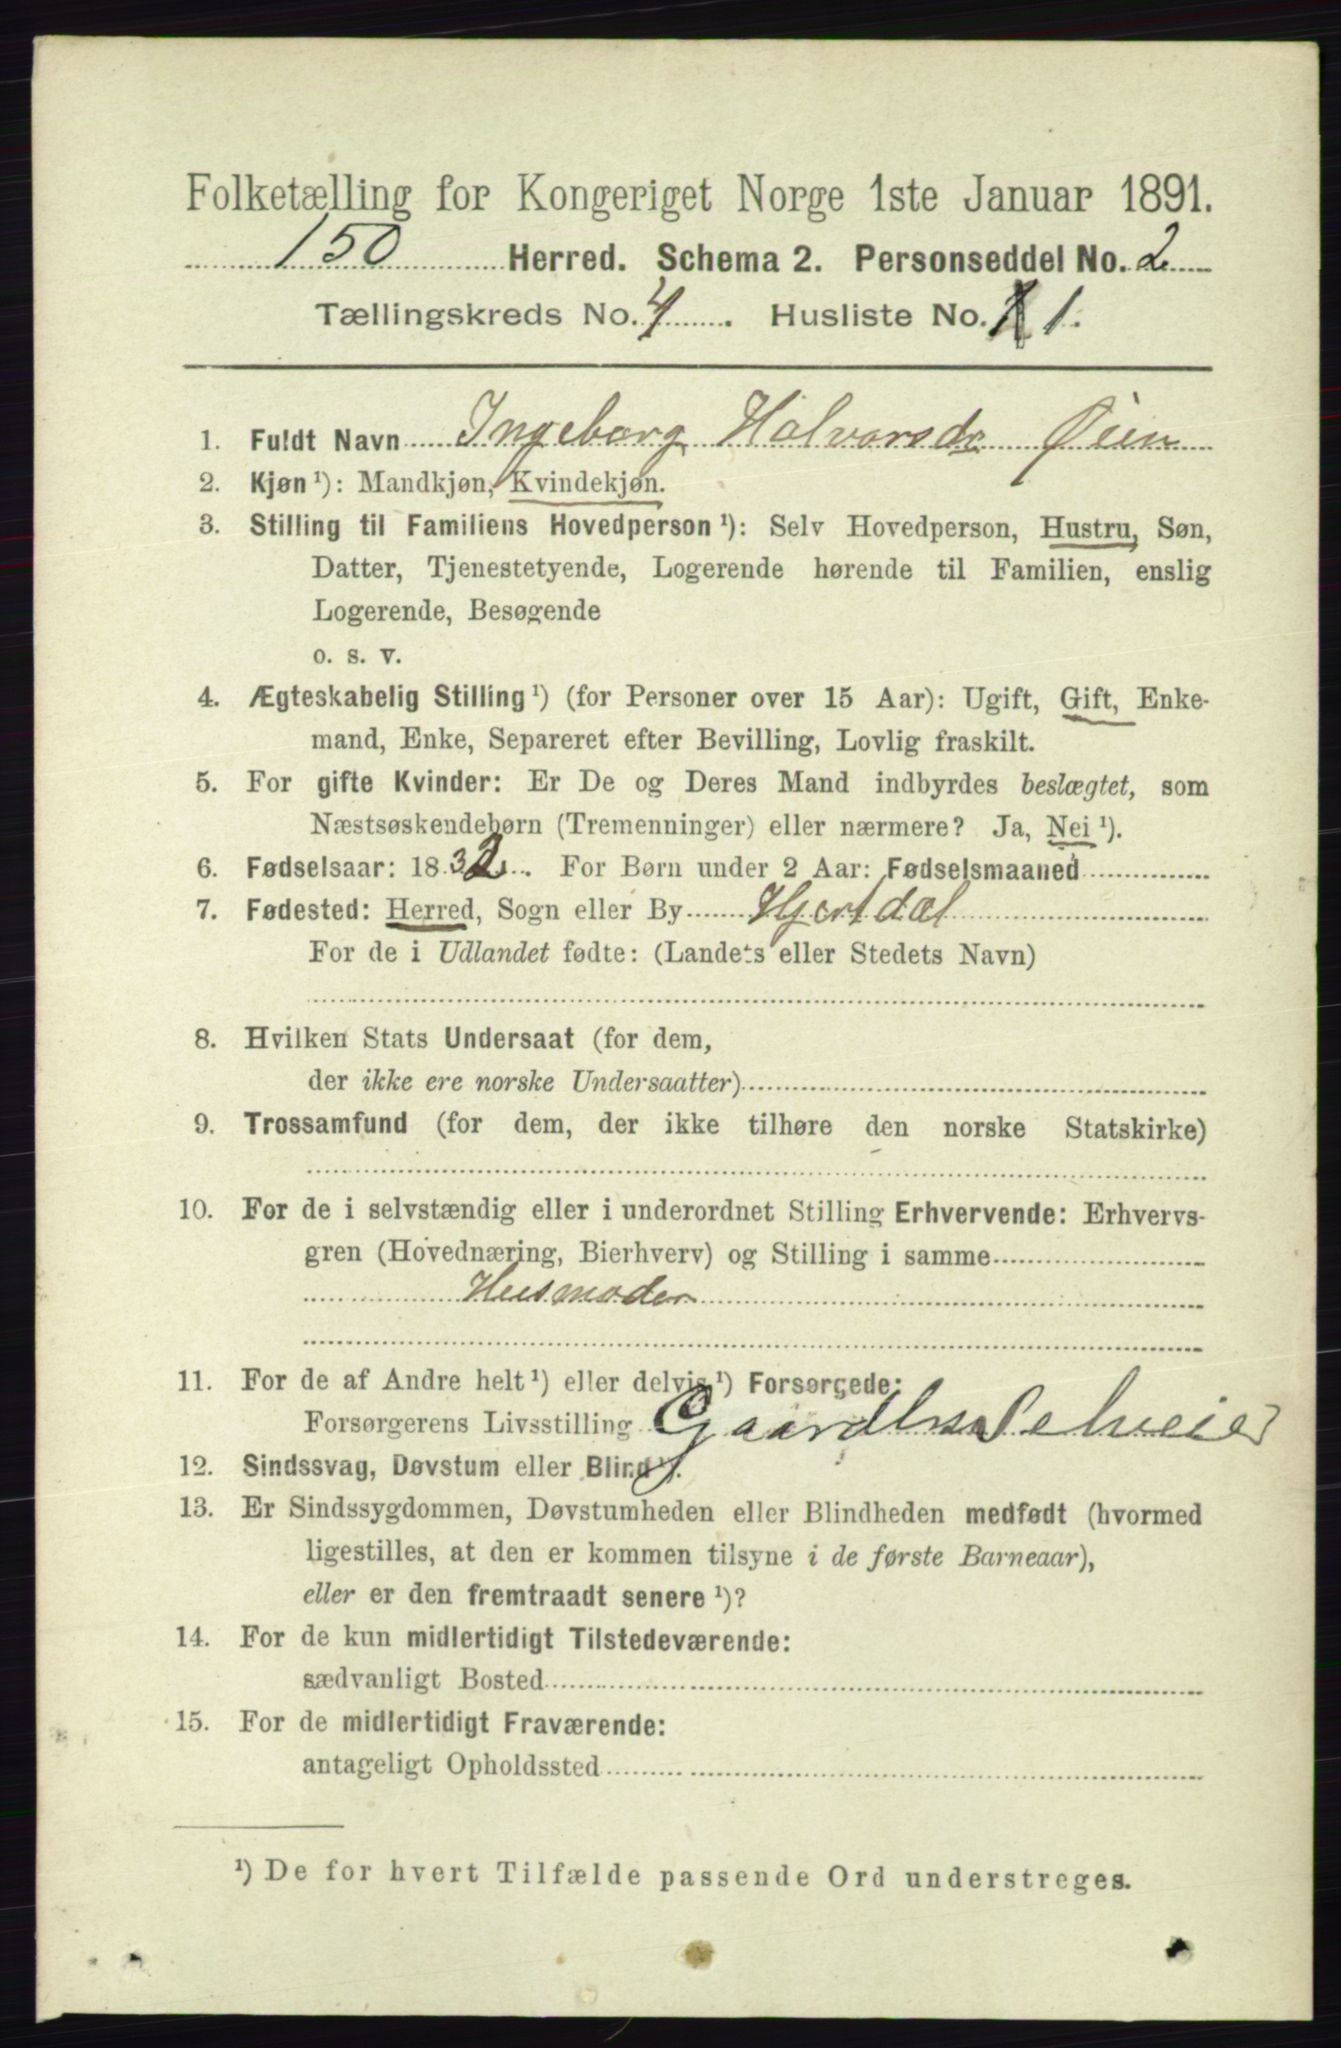 Folketælling for Kongeriget Norge 1ste Januar 1891.
150 Herred. Schema 2. Personseddel No. 2
Tællingskreds No. 4. Husliste No. 1.
1. Fuldt Navn Ingeborg Halvorsdr Øien
2. Kjøn ¹): Mandkjøn, Kvindekjøn.
3. Stilling til Familiens Hovedperson ¹): Selv Hovedperson, Hustru, Søn,
Datter, Tjenestetyende, Logerende hørende til Familien, enslig
Logerende, Besøgende
o. s. v.
4. Ægteskabelig Stilling ¹) (for Personer over 15 Aar): Ugift, Gift, Enke-
mand, Enke, Separeret efter Bevilling, Lovlig fraskilt.
5. For gifte Kvinder: Er De og Deres Mand indbyrdes beslægtet, som
Næstsøskendebørn (Tremenninger) eller nærmere? Ja, Nei ¹).
6. Fødselsaar: 1832. For Børn under 2 Aar: Fødselsmaaned
7. Fødested: Herred, Sogn eller By Hjertdal
For de i Udlandet fødte: (Landets eller Stedets Navn)
8. Hvilken Stats Undersaat (for dem,
der ikke ere norske Undersaatter)
9. Trossamfund (for dem, der ikke tilhøre den norske Statskirke)
10. For de i selvstændig eller i underordnet Stilling Erhvervende: Erhvervs-
gren (Hovednæring, Bierhverv) og Stilling i samme
Husmoder
11. For de af Andre helt ¹) eller delvis ¹) Forsørgede:
Forsørgerens Livsstilling Selveier
12. Sindssvag, Døvstum eller Blind ¹).
13. Er Sindssygdommen, Døvstumheden eller Blindheden medfødt (hvormed
ligestilles, at den er kommen tilsyne i de første Barneaar),
eller er den fremtraadt senere ¹)?
14. For de kun midlertidigt Tilstedeværende:
sædvanligt Bosted
15. For de midlertidigt Fraværende:
antageligt Opholdssted
¹) De for hvert Tilfælde passende Ord understreges.